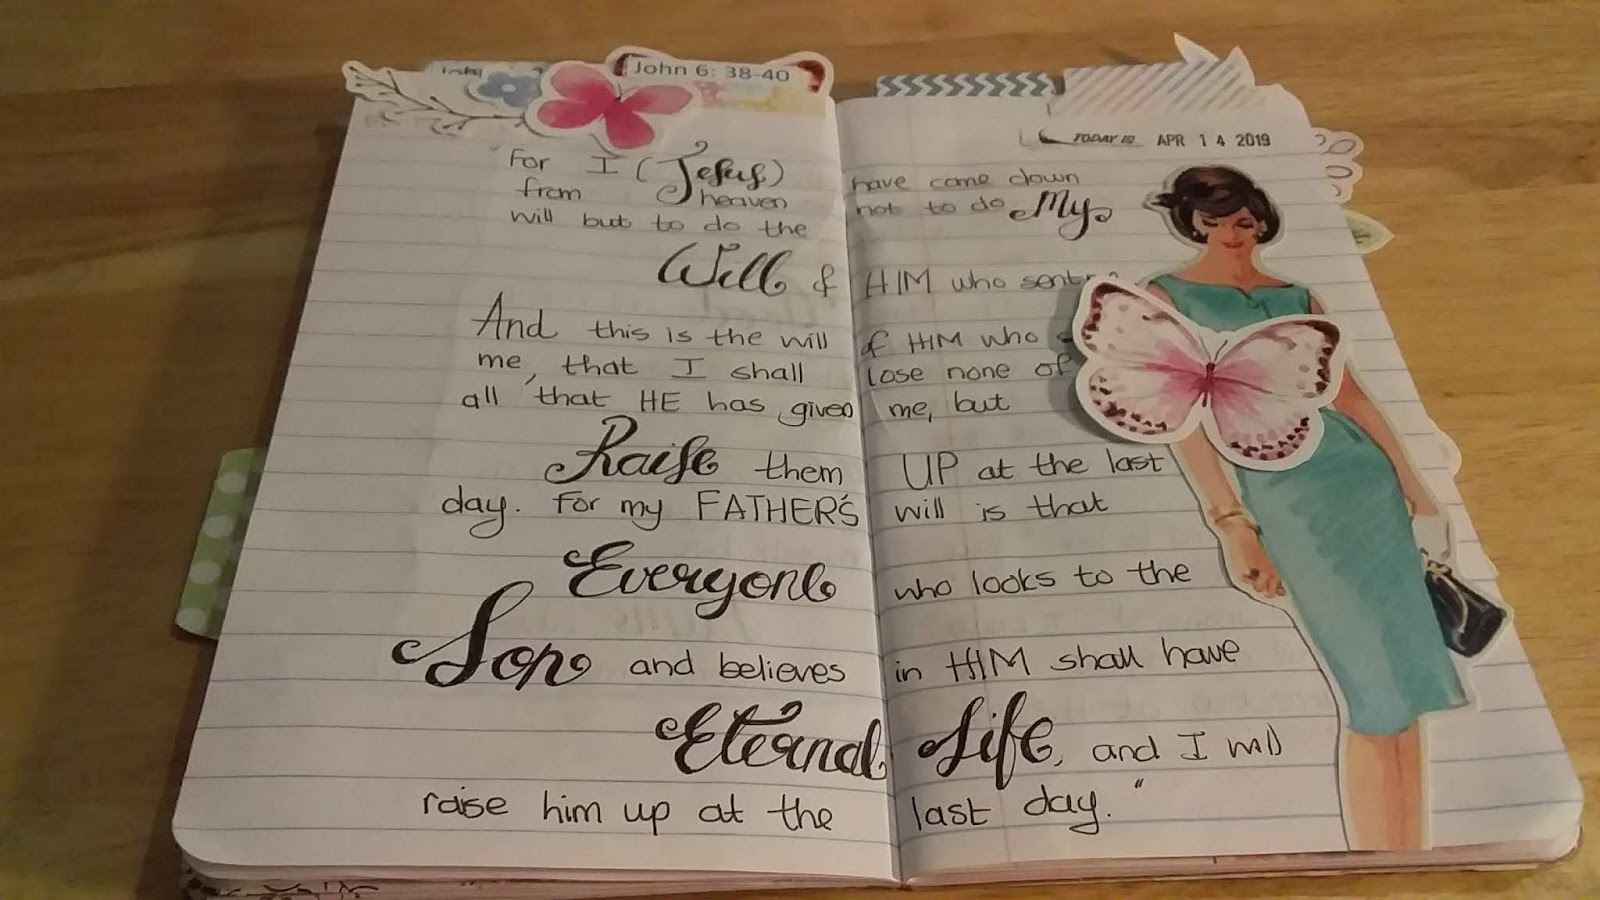 John 6: 38-40
TODAY IS APR 14 2019
"For I (Jesus) have come down
from heaven not to do My
will but to do the
Will of HIM who sent
And this is the will of HIM who
me, that I shall lose none of
all that HE has given me, but
Raise them UP at the last
day. For my FATHER'S will is that
Everyone who looks to the
Son and believes in HIM shall have
Eternal Life, and I will
raise him up at the last day."